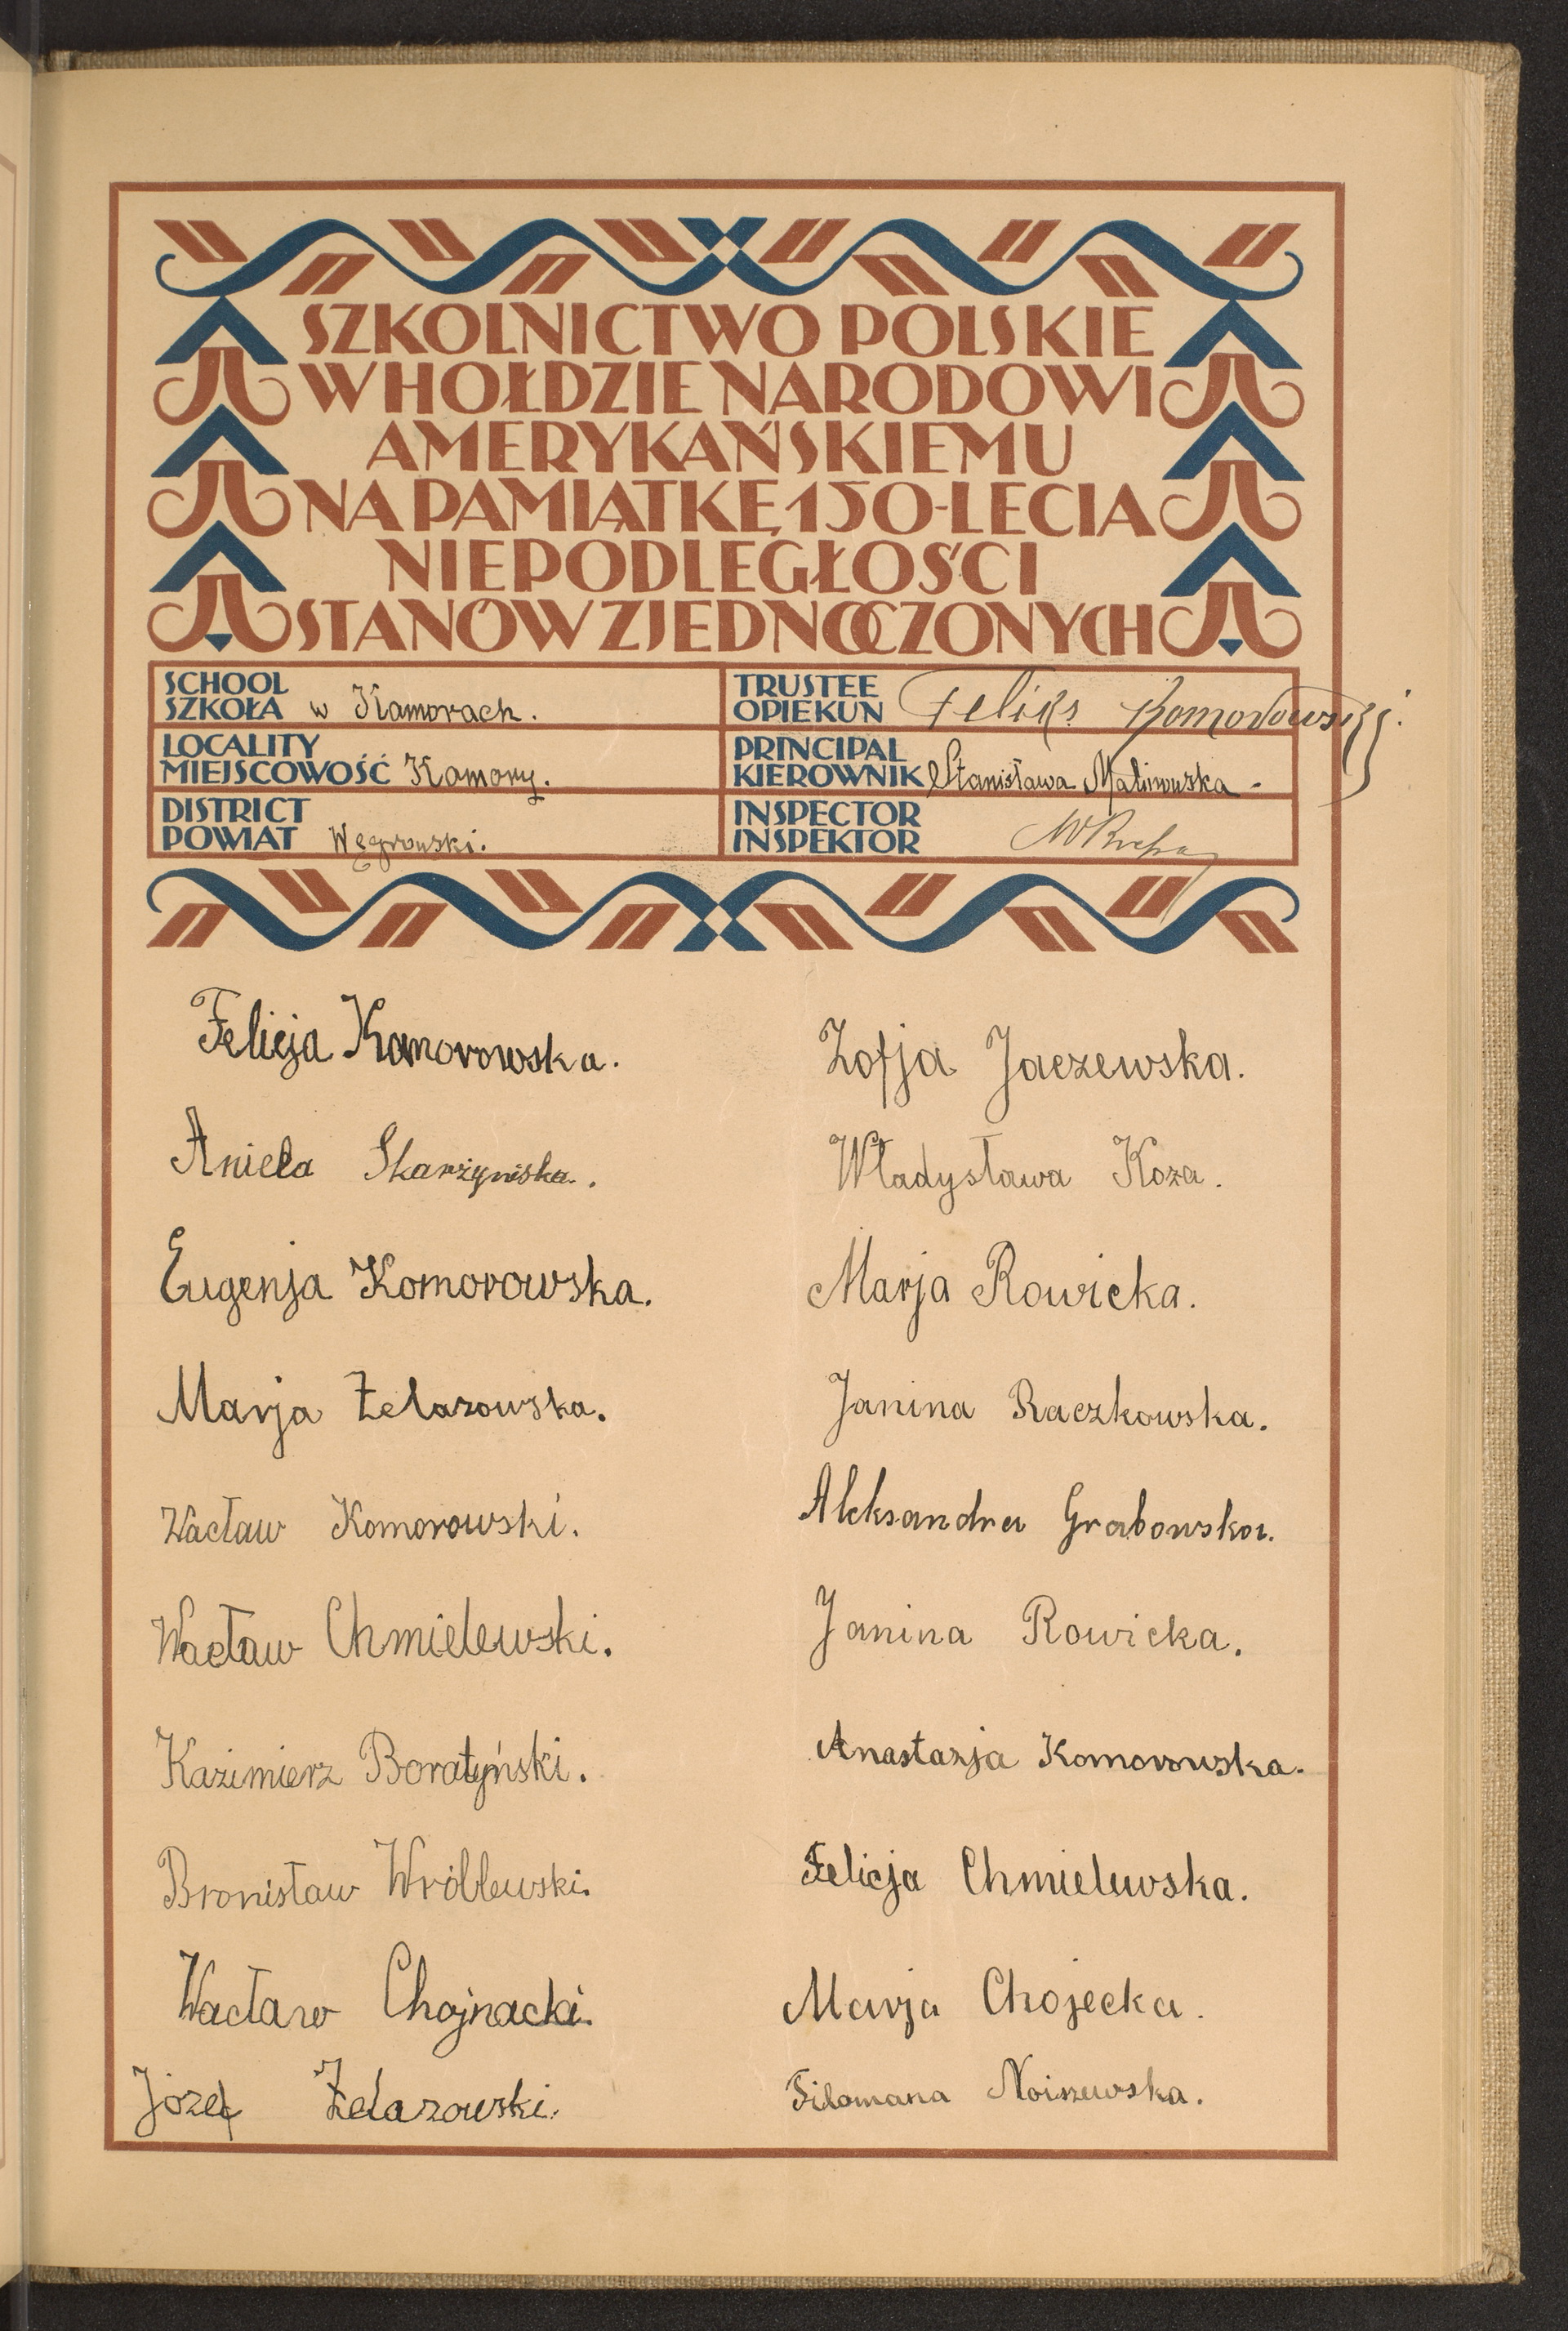 SZKOLNICTWO POLSKIE
W HOŁDZIE NARODOWI
AMERYKAŃSKIEMU
NA PAMIĄTKĘ 150-LECIA
NIEPODLEGŁOŚCI
STANÓW ZJEDNOCZONYCH
SCHOOL
SZKOŁA w Kamorach.
LOCALITY
MIEJSCOWOŚĆ Komory.
DISTRICT
POWIAT Węgrowski.
TRUSTEE
OPIEKUN Feliks Komorowski.
PRINCIPAL
KIEROWNIK Stanisława Malinowska
INSPECTOR
INSPEKTOR
Felicja Kamorowska.
Aniela Skarżyńska.
Eugenja Komorowska.
Marja Żelazowska.
Wacław Komorowski.
Wacław Chmielewski.
Kazimierz Boratyński.
Bronisław Wróblewski.
Wacław Chojnacki.
Józef Żelazowski.
Zofja Jaczewska.
Władysława Koza.
Marja Rowicka.
Janina Raczkowska.
Aleksandra Grabowska.
Janina Rowicka.
Anastazja Komorowska.
Felicja Chmielewska.
Marja Chojecka.
Filomana Noiszewska.